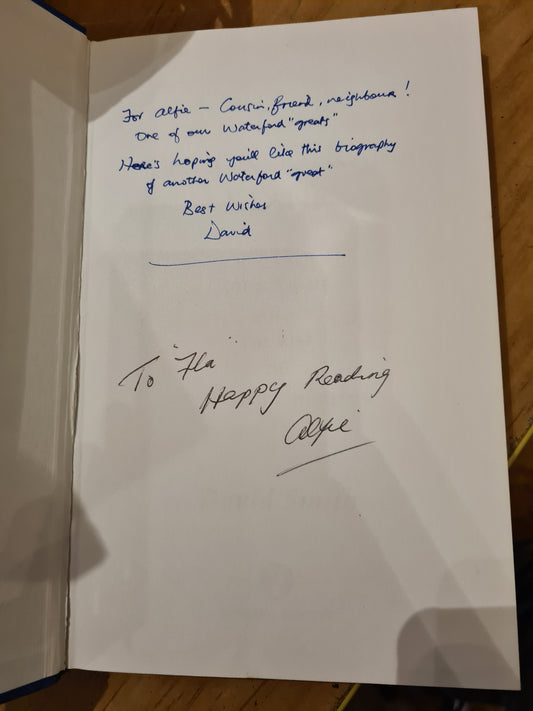 For Alfie – Cousin, friend, neighbour!
One of our Waterford "greats"
Here's hoping you'll like this biography
of another Waterford "great"
Best Wishes
David
To "Fla"
Happy Reading
Alfie